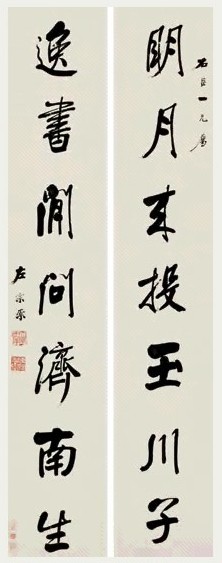 石臣一兄屬
明月来投玉川子
逸書閒問濟南生
左宗棠